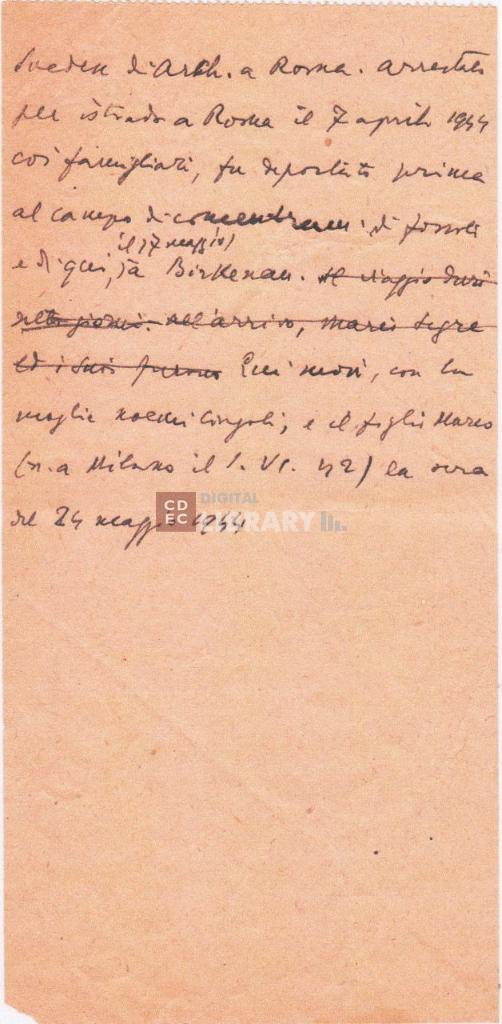 Sveden di Arch. a Roma. Arrestato
per istrada a Roma il 7 aprile 1944
coi famigliari, fu deportato prima
al campo di concentram. di Fossoli
(il 17 maggio)
e di qui, a Birkenau. Il viaggio durò
sette giorni. All'arrivo, Mario Segre
ed i suoi furono Qui morì, con la
moglie Noemi Cingoli, e il figlio Marco
(n. a Milano il 1. VI. 42) la sera
del 24 maggio 1944
CDEC DIGITAL LIBRARY